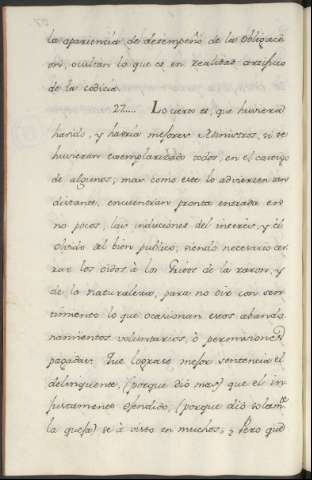 la apariencia de desempeño de la Obligaci
on, ocultan lo que es en realidad artificio
de la codicia.
27.... Lo cierto es, que huviera
havido, y havria mejores Ministros, si se
huvieran exemplarizado todos, en el castigo
de algunos; mas como este lo advierten tan
distante, encuentran pronta entrada en
no pocos, las inducciones del interes, y el
olvido del bien publico, siendo necesario cer
rar los oidos à los Gritos de la razon, y
de la naturaleza, para no oir con sen
timiento lo que ocasionan estos abando
namientos voluntarios, ò permisiones
pagadas. Que lograse mejor sentencia el
delinquente, (porque dió mas) que el in
justamente ofendido, (porque dió solamte
la quexa) se à visto en muchos; y Pero què